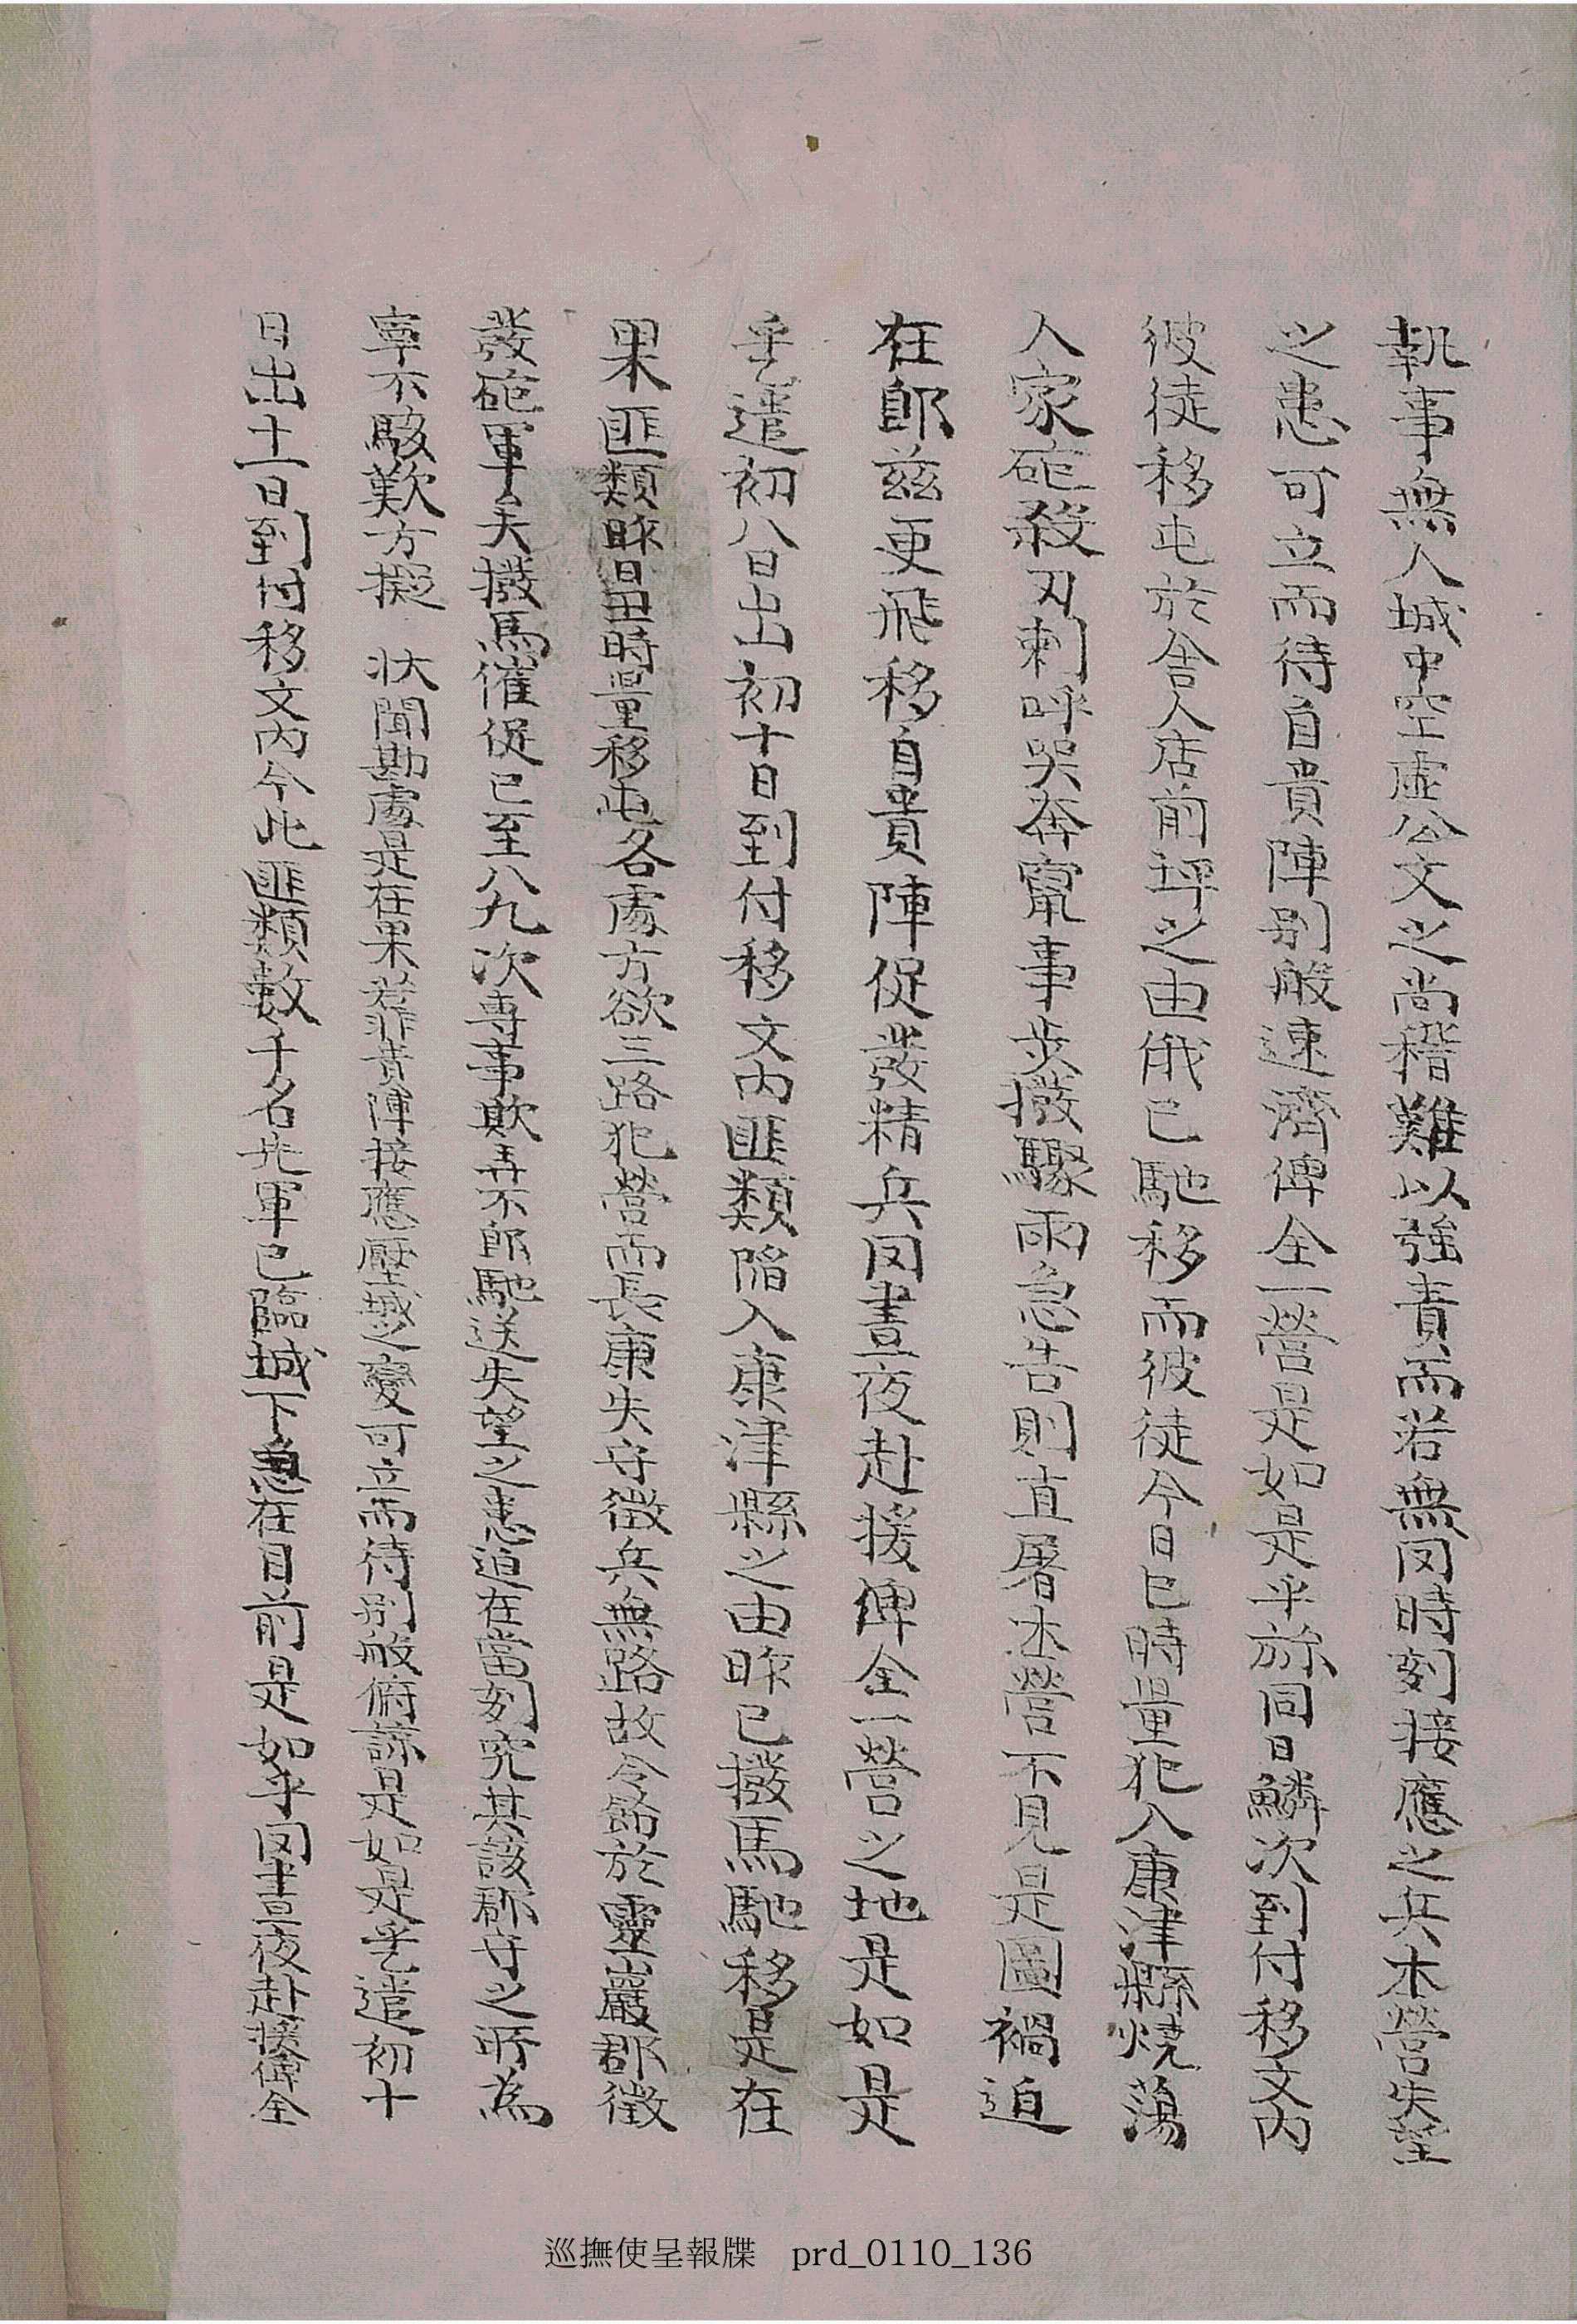 執事無人城中空虛公文之尚稽難以強責而若無罔時刻接應之兵本營失望
之患可立而待自貴陣別般速濟俾全一營是如是乎旀同日鱗次到付移文內
彼徒移屯於舍人店前坪之由俄已馳移而彼徒今日巳時量犯入康津縣燒蕩
人家砲殺刃刺呼哭奔竄事步撥驟雨急告則直屠本營不見是圖禍迫
在卽玆更飛移自貴陣促發精兵罔晝夜赴援俾全一營之地是如是
乎遣初八日出初十日到付移文內匪類陷入康津縣之由昨已撥馬馳移是在
果匪類昨日昷時量移屯各處方欲三路犯營而長康失守徵兵無路故令飭於靈巖郡徵
發砲軍矣撥馬催促已至八九次專事欺弄不卽馳送失望之患迫在當刻究其該郡守之所爲
寧不駭歎方擬 狀聞勘處是在果若非貴陣接應壓城之變可立而待別般俯諒是如是乎遣初十
日出十一日到付移文內今此匪類數千名先軍已臨城下急在目前是如乎罔晝夜赴援俾全
巡撫使呈報牒 prd_0110_136